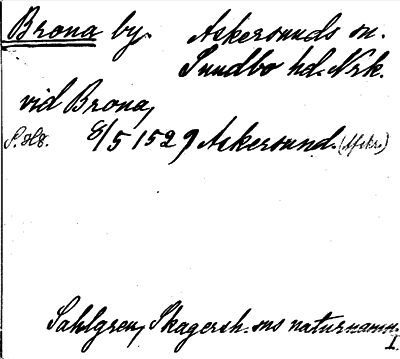 Brona by. Askersunds sn.
Sundbo hd. Nrk.
vid Brona,
S. 28. 8/5 1529 Askersund. (Afskr.)
Sahlgren, Skagersh. sns naturnamn.
I.